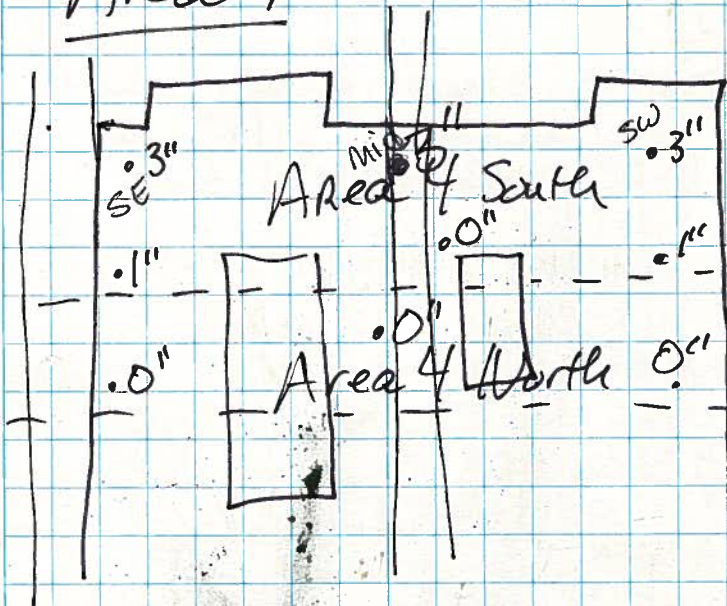 3"
SE
Mid 3"
SW
3"
Area 4 South
0"
1"
1"
0"
Area 4 North
0"
0"